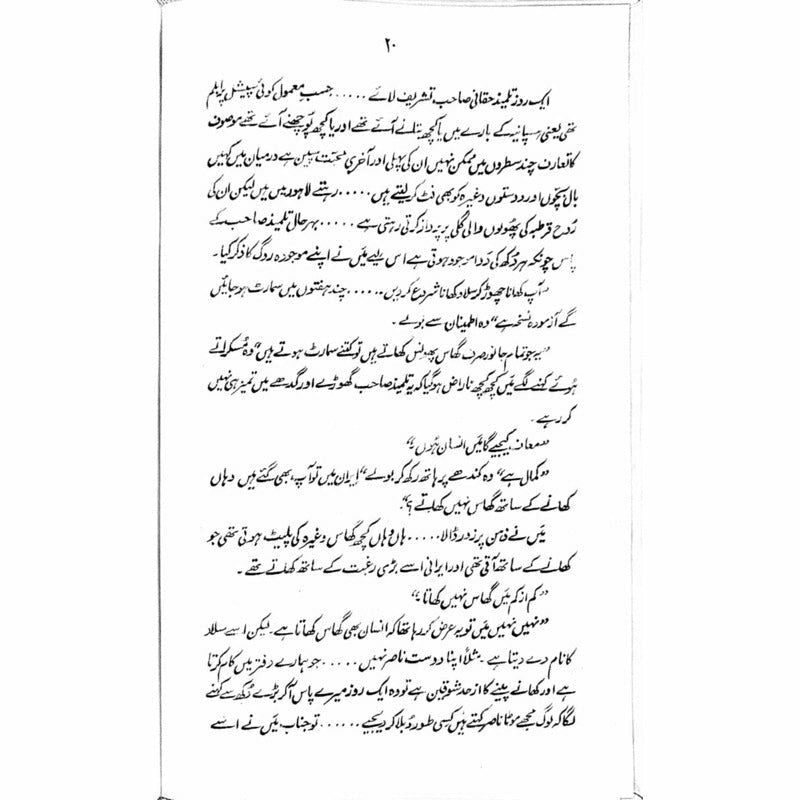 ۲۰
ایک روز تلمیذ حقانی صاحب تشریف لائے ..... حسبِ معمول کوئی سپیشل پرابلم
تھی یعنی ہسپانیہ کے بارے میں یا کچھ بتانے آئے تھے اور یا کچھ پوچھنے آئے تھے موصوف
کا تعارف چند سطروں میں ممکن نہیں ان کی پہلی اور آخری محبت سپین ہے درمیان میں کہیں
بال بچوں اور دوستوں وغیرہ کو بھی فٹ کر لیتے ہیں ..... رہتے لاہور میں ہیں لیکن ان کی
رُوح قرطبہ کی پھُولوں والی گلی پر پرواز کرتی رہتی ہے ..... بہرحال تلمیذ صاحب کے
پاس چونکہ ہر دُکھ کی دوا موجود ہوتی ہے اس لیے مَیں نے اپنے موجودہ روگ کا ذکر کیا۔
"آپ کھانا چھوڑ کر سلاد کھانا شروع کر دیں ..... چند ہفتوں میں سمارٹ ہو جائیں
گے آزمودہ نسخہ ہے" وہ اطمینان سے بولے۔
"یہ جو تمام جانور صرف گھاس پھونس کھاتے ہیں تو کتنے سمارٹ ہوتے ہیں" وہ مُسکراتے
ہُوئے کہنے لگے مَیں کچھ کچھ ناراض ہو گیا کہ یہ تلمیذ صاحب گھوڑے اور گدھے میں تمیز ہی نہیں
کر رہے۔
"معاف کیجیے گا مَیں انسان ہُوں۔"
"کمال ہے" وہ کندھے پر ہاتھ رکھ کر بولے "ایران میں تو آپ بھی گئے ہیں وہاں
کھانے کے ساتھ گھاس نہیں کھاتے؟"
مَیں نے ذہن پر زور ڈالا ..... ہاں وہاں کچھ گھاس وغیرہ کی پلیٹ ہوتی تھی جو
کھانے کے ساتھ آتی تھی اور ایرانی اسے بڑی رغبت کے ساتھ کھاتے تھے۔
"کم از کم مَیں گھاس نہیں کھاتا۔"
"نہیں نہیں مَیں تو یہ عرض کر رہا تھا کہ انسان بھی گھاس کھاتا ہے۔ لیکن اسے سلاد
کا نام دے دیتا ہے۔ مثلاً اپنا دوست ناصر نہیں ..... جو ہمارے دفتر میں کام کرتا
ہے اور کھانے پینے کا از حد شوقین ہے تو وہ ایک روز میرے پاس آ کر بڑے دُکھ سے کہنے
لگا کہ لوگ مجھے موٹا ناصر کہتے ہیں کسی طور دُبلا کر دیجیے ...... تو جناب مَیں نے اسے